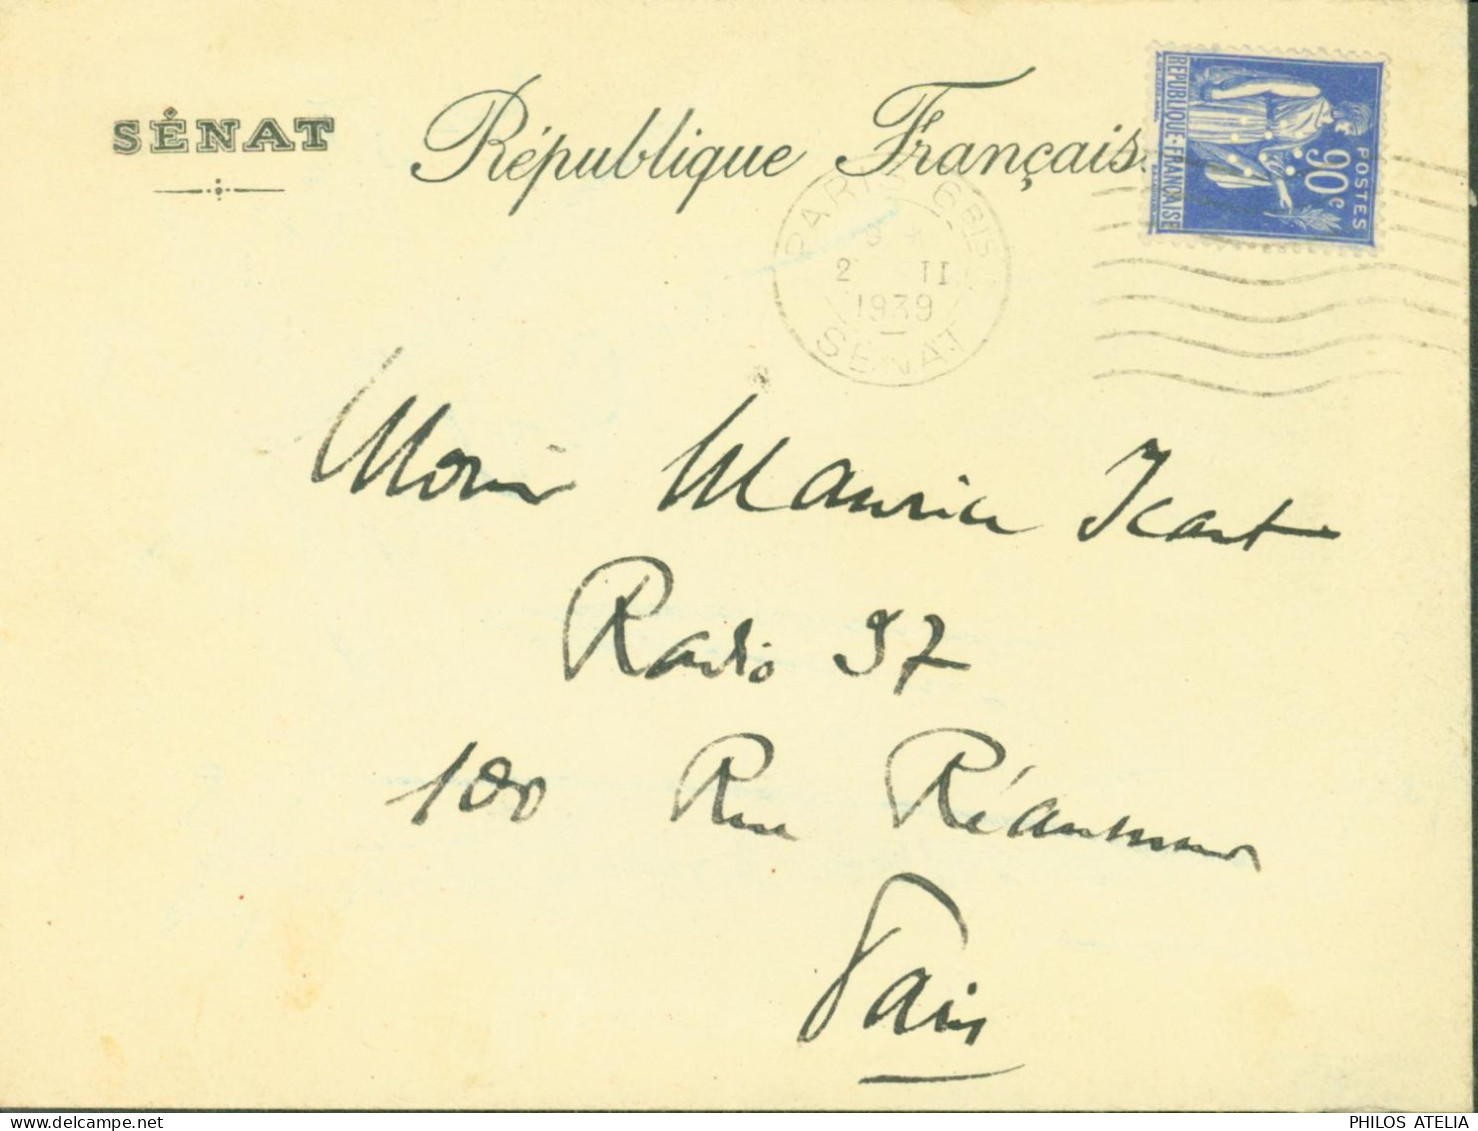 SÉNAT
République Française
RÉPUBLIQUE-FRANÇAISE
POSTES
90c
PARIS 6 BIS
2 II
1939
SÉNAT
Monsieur Maurice Icart
Radio 37
100 Rue Réaumur
Paris
PHILOS ATELIA